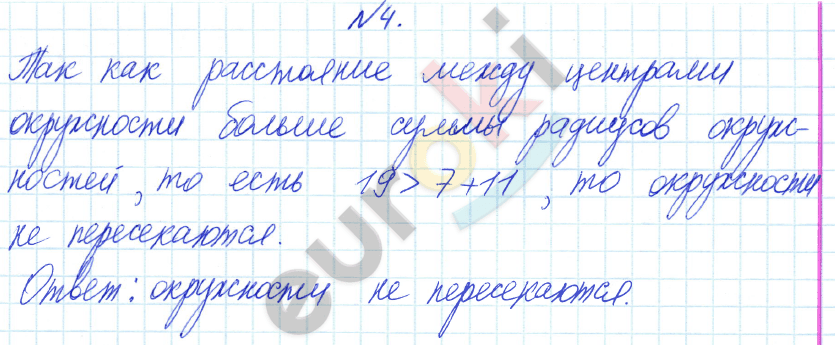 №4.
Так как расстояние между центрами
окружности больше суммы радиусов окруж-
ностей, то есть 19 > 7 + 11, то окружности
не пересекаются.
Ответ: окружности не пересекаются.
euroki